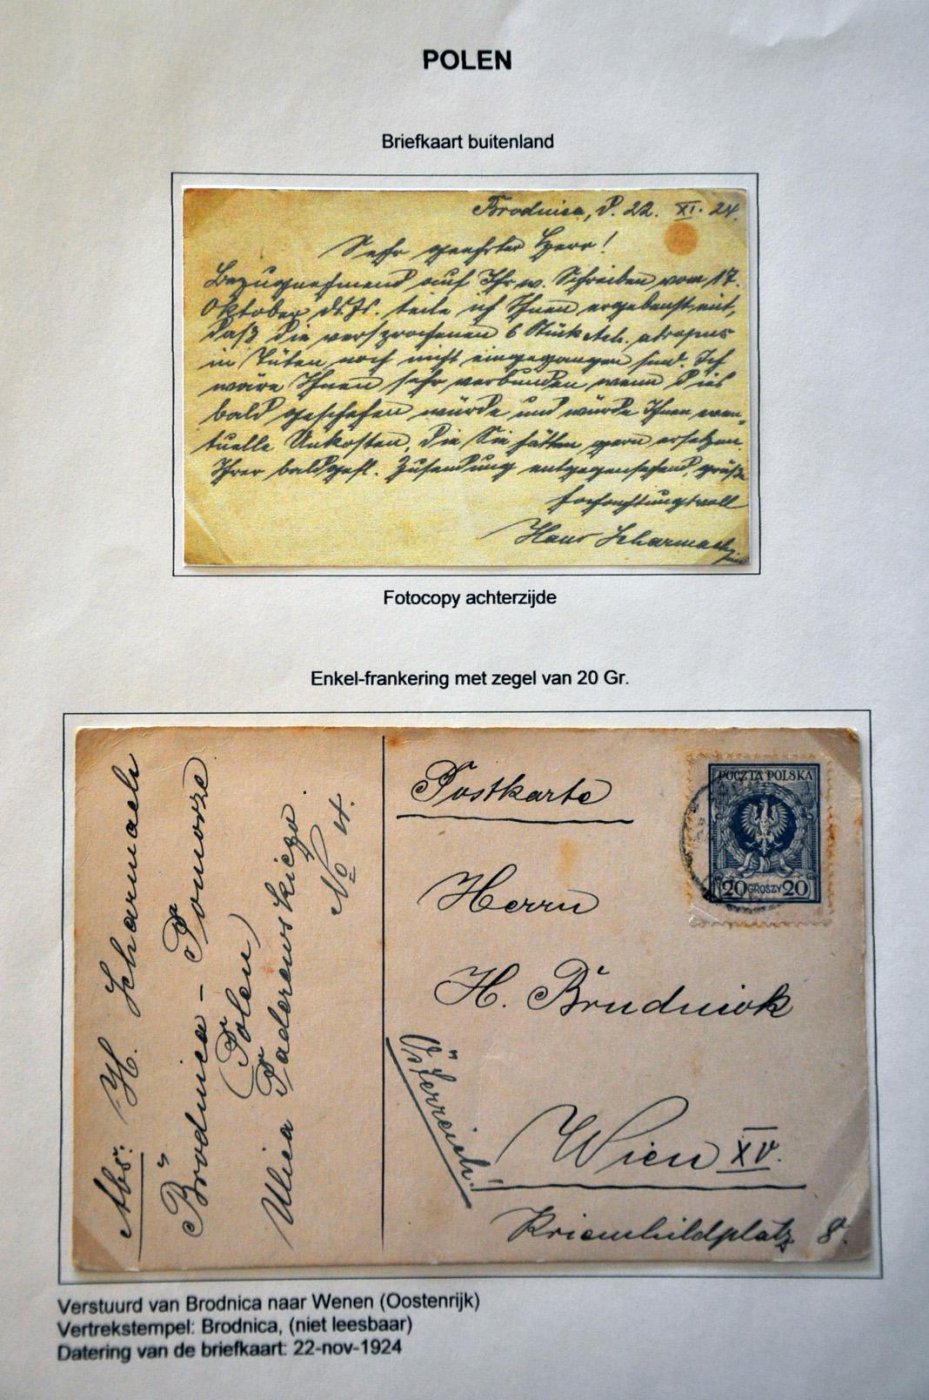 POLEN
Briefkaart buitenland
Brodnica, d. 22. XI. 24.
Sehr geehrter Herr!
Bezugnehmend auf Ihr w. Schreiben vom 17.
Oktober ds. Js. teile ich Ihnen ergebenst mit,
daß die versprochenen 6 Stück Ach. atropos
in Tüten noch nicht eingegangen sind. Ich
wäre Ihnen sehr verbunden, wenn dies
bald geschehen würde und würde Ihnen even-
tuelle Unkosten, die Sie hätten gern ersetzen.
Ihrer baldgefl. Zusendung entgegensehend, grüßt
hochachtungsvoll
Hans Scharmach
Fotocopy achterzijde
Enkel-frankering met zegel van 20 Gr.
Abs: H. Scharmach
Brodnica - Pomorze
(Polen)
Ulica Paderewskiego
No 4.
Postkarte
POCZTA POLSKA
20 GROSZY 20
Herrn
H. Brudniok
Österreich!
Wien XV.
Kriemhildplatz 8.
Verstuurd van Brodnica naar Wenen (Oostenrijk)
Vertrekstempel: Brodnica, (niet leesbaar)
Datering van de briefkaart: 22-nov-1924